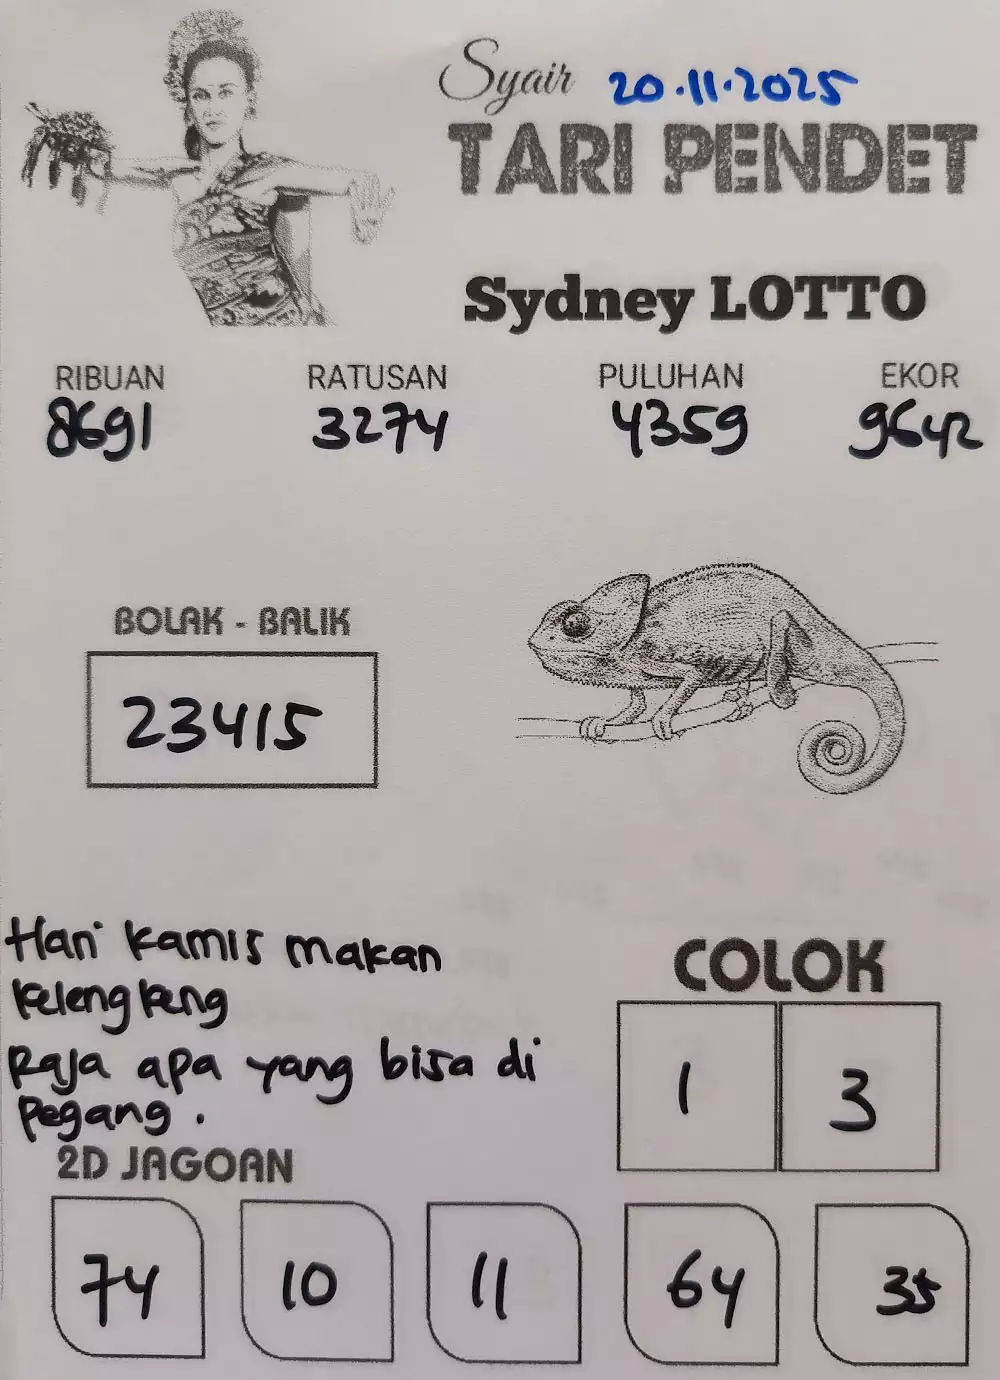 Syair 20.11.2025
TARI PENDET
Sydney LOTTO
RIBUAN RATUSAN PULUHAN EKOR
8691 3274 4359 9642
BOLAK - BALIK
23415
Hari kamis makan
kelengkeng
Raja apa yang bisa di
Pegang .
COLOK
1 3
2D JAGOAN
74 10 11 64 35